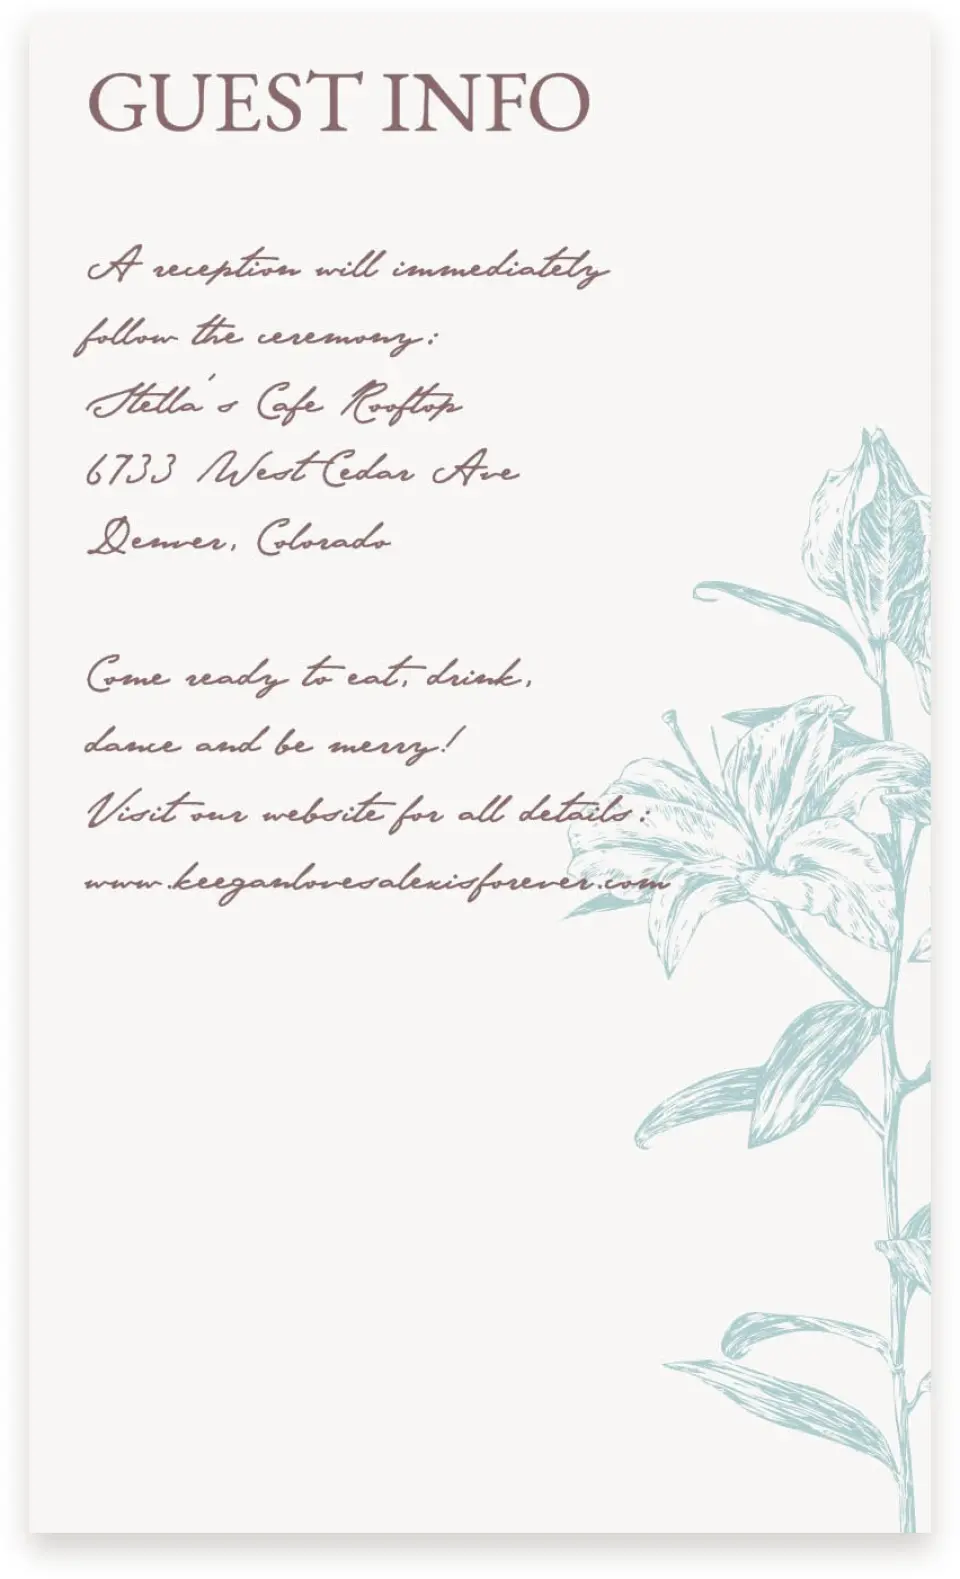 GUEST INFO
A reception will immediately
follow the ceremony:
Stella's Cafe Rooftop
6733 West Cedar Ave
Denver, Colorado
Come ready to eat, drink,
dance and be merry!
Visit our website for all details:
www.keeganlovesalexisforever.com